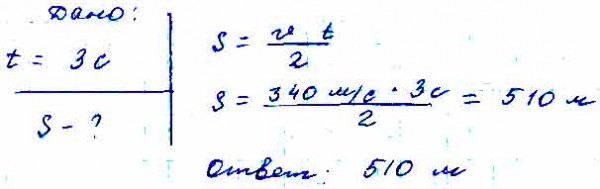 Дано:
t = 3 с
S - ?
S = v t / 2
S = 340 м/с · 3с / 2 = 510 м
Ответ: 510 м